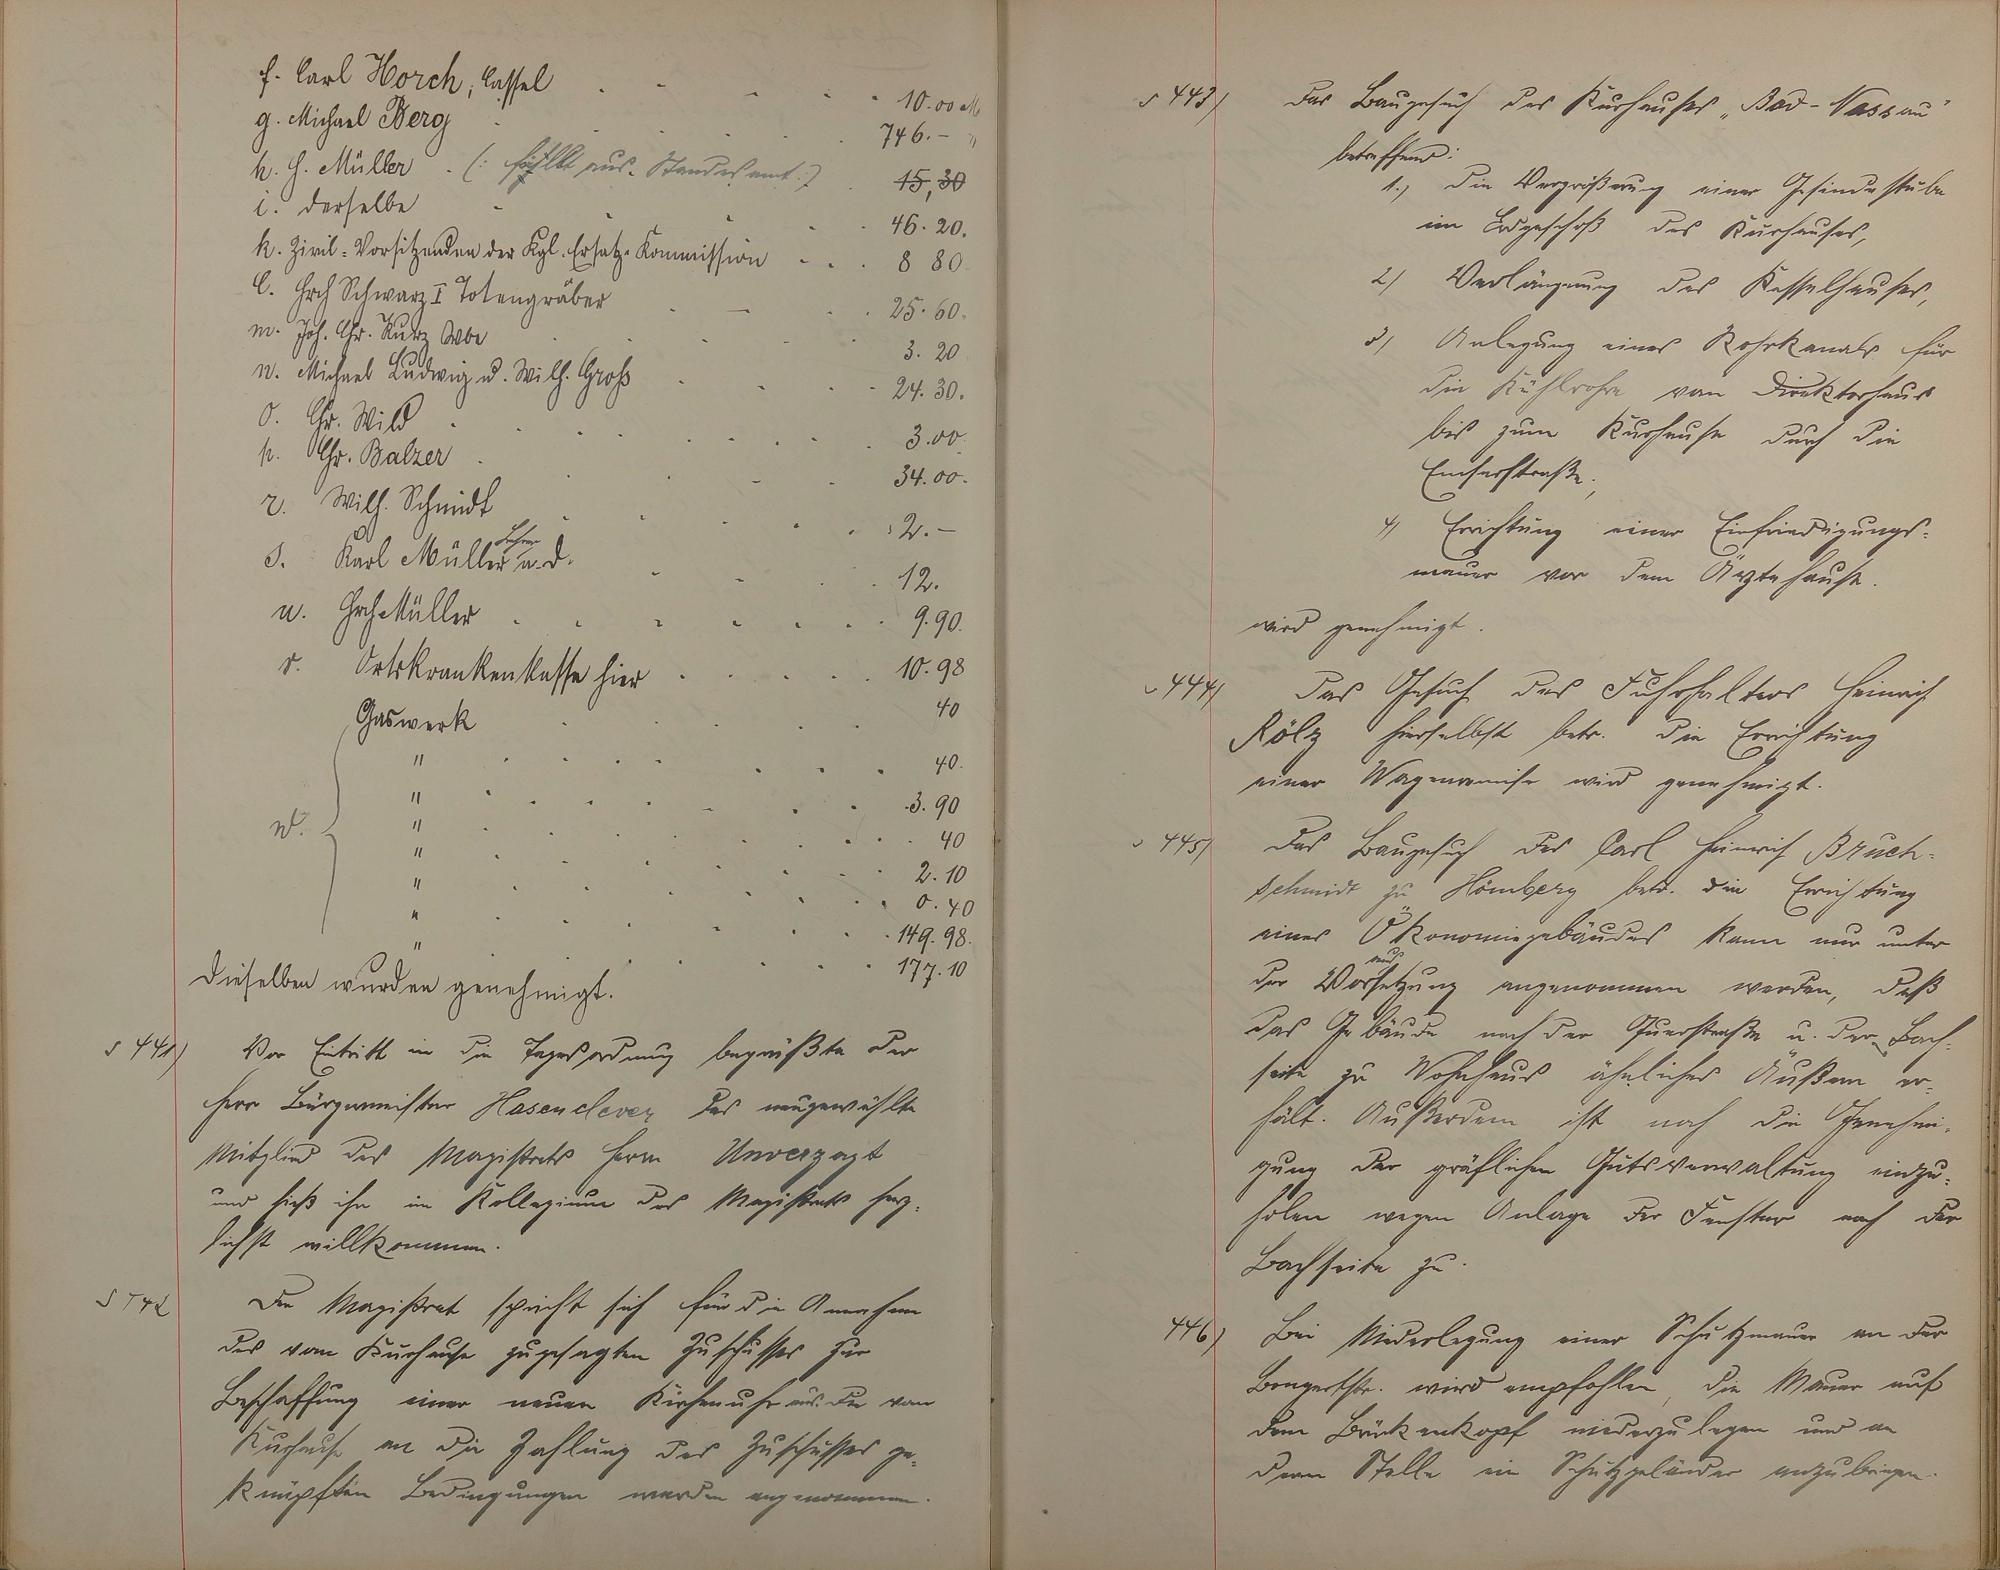 f. Carl Horch, Cassel 10.00 M
g. Michael Berg 746.- "
h. H. Müller (: fällt aus. Standesamt :) 15,30
i. derselbe 46.20.
k. Zivil-Vorsitzenden der Kgl. Ersatz-Kommission 8 80
l. Hrch Schwarz I Totengräber 25.60.
m. Joh. Chr. Kurz Wwe 3.20
n. Michael Ludwig u. Wilh. Groß 24.30.
o. Chr. Wild 3.00.
p. Chr. Balzer 34.00.
r. Wilh. Schmidt 2.-
Lehrer
s. Karl Müller a.d. 12.
u. Hrch Müller 9.90.
v. Ortskrankenkasse hier 10.98
Gaswerk 40
" 40.
" 3.90
w. " 40
" 2.10
" 0.40
" 149.98.
" 177.10
Dieselben wurden genehmigt.
§ 441) Vor Eintritt in die Tagesordnung begrüßte der
Herr Bürgermeister Hasenclever das neugewählte
Mitglied des Magistrats Herrn Unverzagt
und hieß ihn im Kollegium des Magistrats herz-
lichst willkommen.
§ 442 Der Magistrat spricht sich für die Annahme
des vom Kurhause zugesagten Zuschusses zur
Beschaffung einer neuen Kirchenuhr aus. Die vom
Kurhause an die Zahlung des Zuschusses ge-
knüpften Bedingungen werden angenommen.
§ 443) Das Baugesuch des Kurhauses „Bad-Nassau"
betreffend:
1.) die Vergrößerung einer Gesindestube
im Erdgeschoß des Kurhauses,
2) Verlängerung des Kesselhauses,
3) Anlegung eines Rohrkanals für
die Kühlrohre vom Direktorhaus
bis zum Kurhause durch die
Emserstraße,
4) Errichtung einer Einfriedigungs-
mauer vor dem Ärztehause.
wird genehmigt.
444) Das Gesuch des Fuhrhalters Heinrich
Rölz hierselbst betr. die Errichtung
einer Wagenremise wird genehmigt.
445) Das Baugesuch des Carl Heinrich Bruch-
schmidt zu Hömberg betr. die Errichtung
eines Ökonomiegebäudes kann nur unter
aus
der Vorsetzung angenommen werden, daß
das Gebäude nach der Querstraße u. der Bach-
seite zu Wohnhaus ähnliches Äußern er-
hält. Außerdem ist noch die Genehmi-
gung der gräflichen Gutsverwaltung einzu-
holen wegen Anlage der Fenster nach der
Bachseite zu.
446) Bei Niederlegung einer Schutzmauer an der
Bongertstr. wird empfohlen, die Mauer auf
dem Brückenkopf niederzulegen und an
deren Stelle ein Schutzgeländer anzubringen.